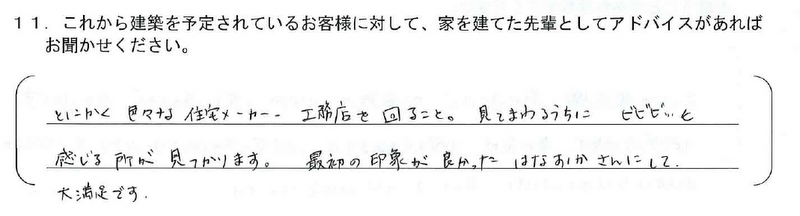 11．これから建築を予定されているお客様に対して、家を建てた先輩としてアドバイスがあれば
お聞かせください。
とにかく 色々な 住宅メーカー、工務店を 回ること。見てまわるうちに ビビビッと
感じる 所が 見つかります。 最初の 印象が 良かった はなおかさんにして、
大満足です。